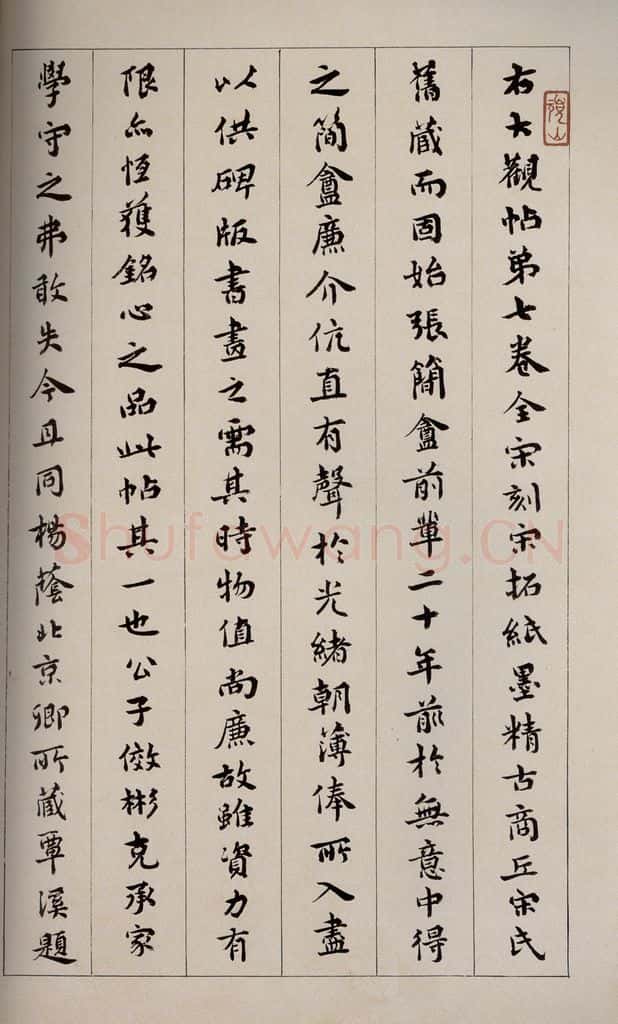 右大觀帖弟七卷全宋刻宋拓紙墨精古商丘宋氏
舊藏而固始張簡盦前輩二十年前於無意中得
之簡盦廉介伉直有聲於光緒朝薄俸所入盡
以供碑版書畫之需其時物值尚廉故雖資力有
限亦恆獲銘心之品此帖其一也公子傚彬克承家
學守之弗敢失今且同楊蔭北京卿所藏覃溪題
Shufawang.CN